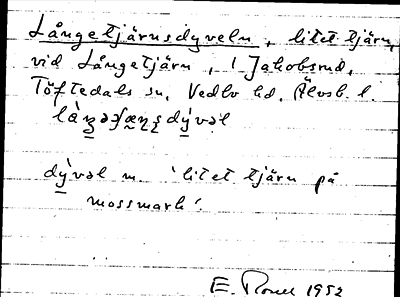 Långetjärnsdyveln, litet tjärn,
vid Långetjärn, i Jakobsrud,
Töftedals sn, Vedbo hd. Älvsb. l.
dỳvəl m. 'litet tjärn på
mossmark'.
E. 1952